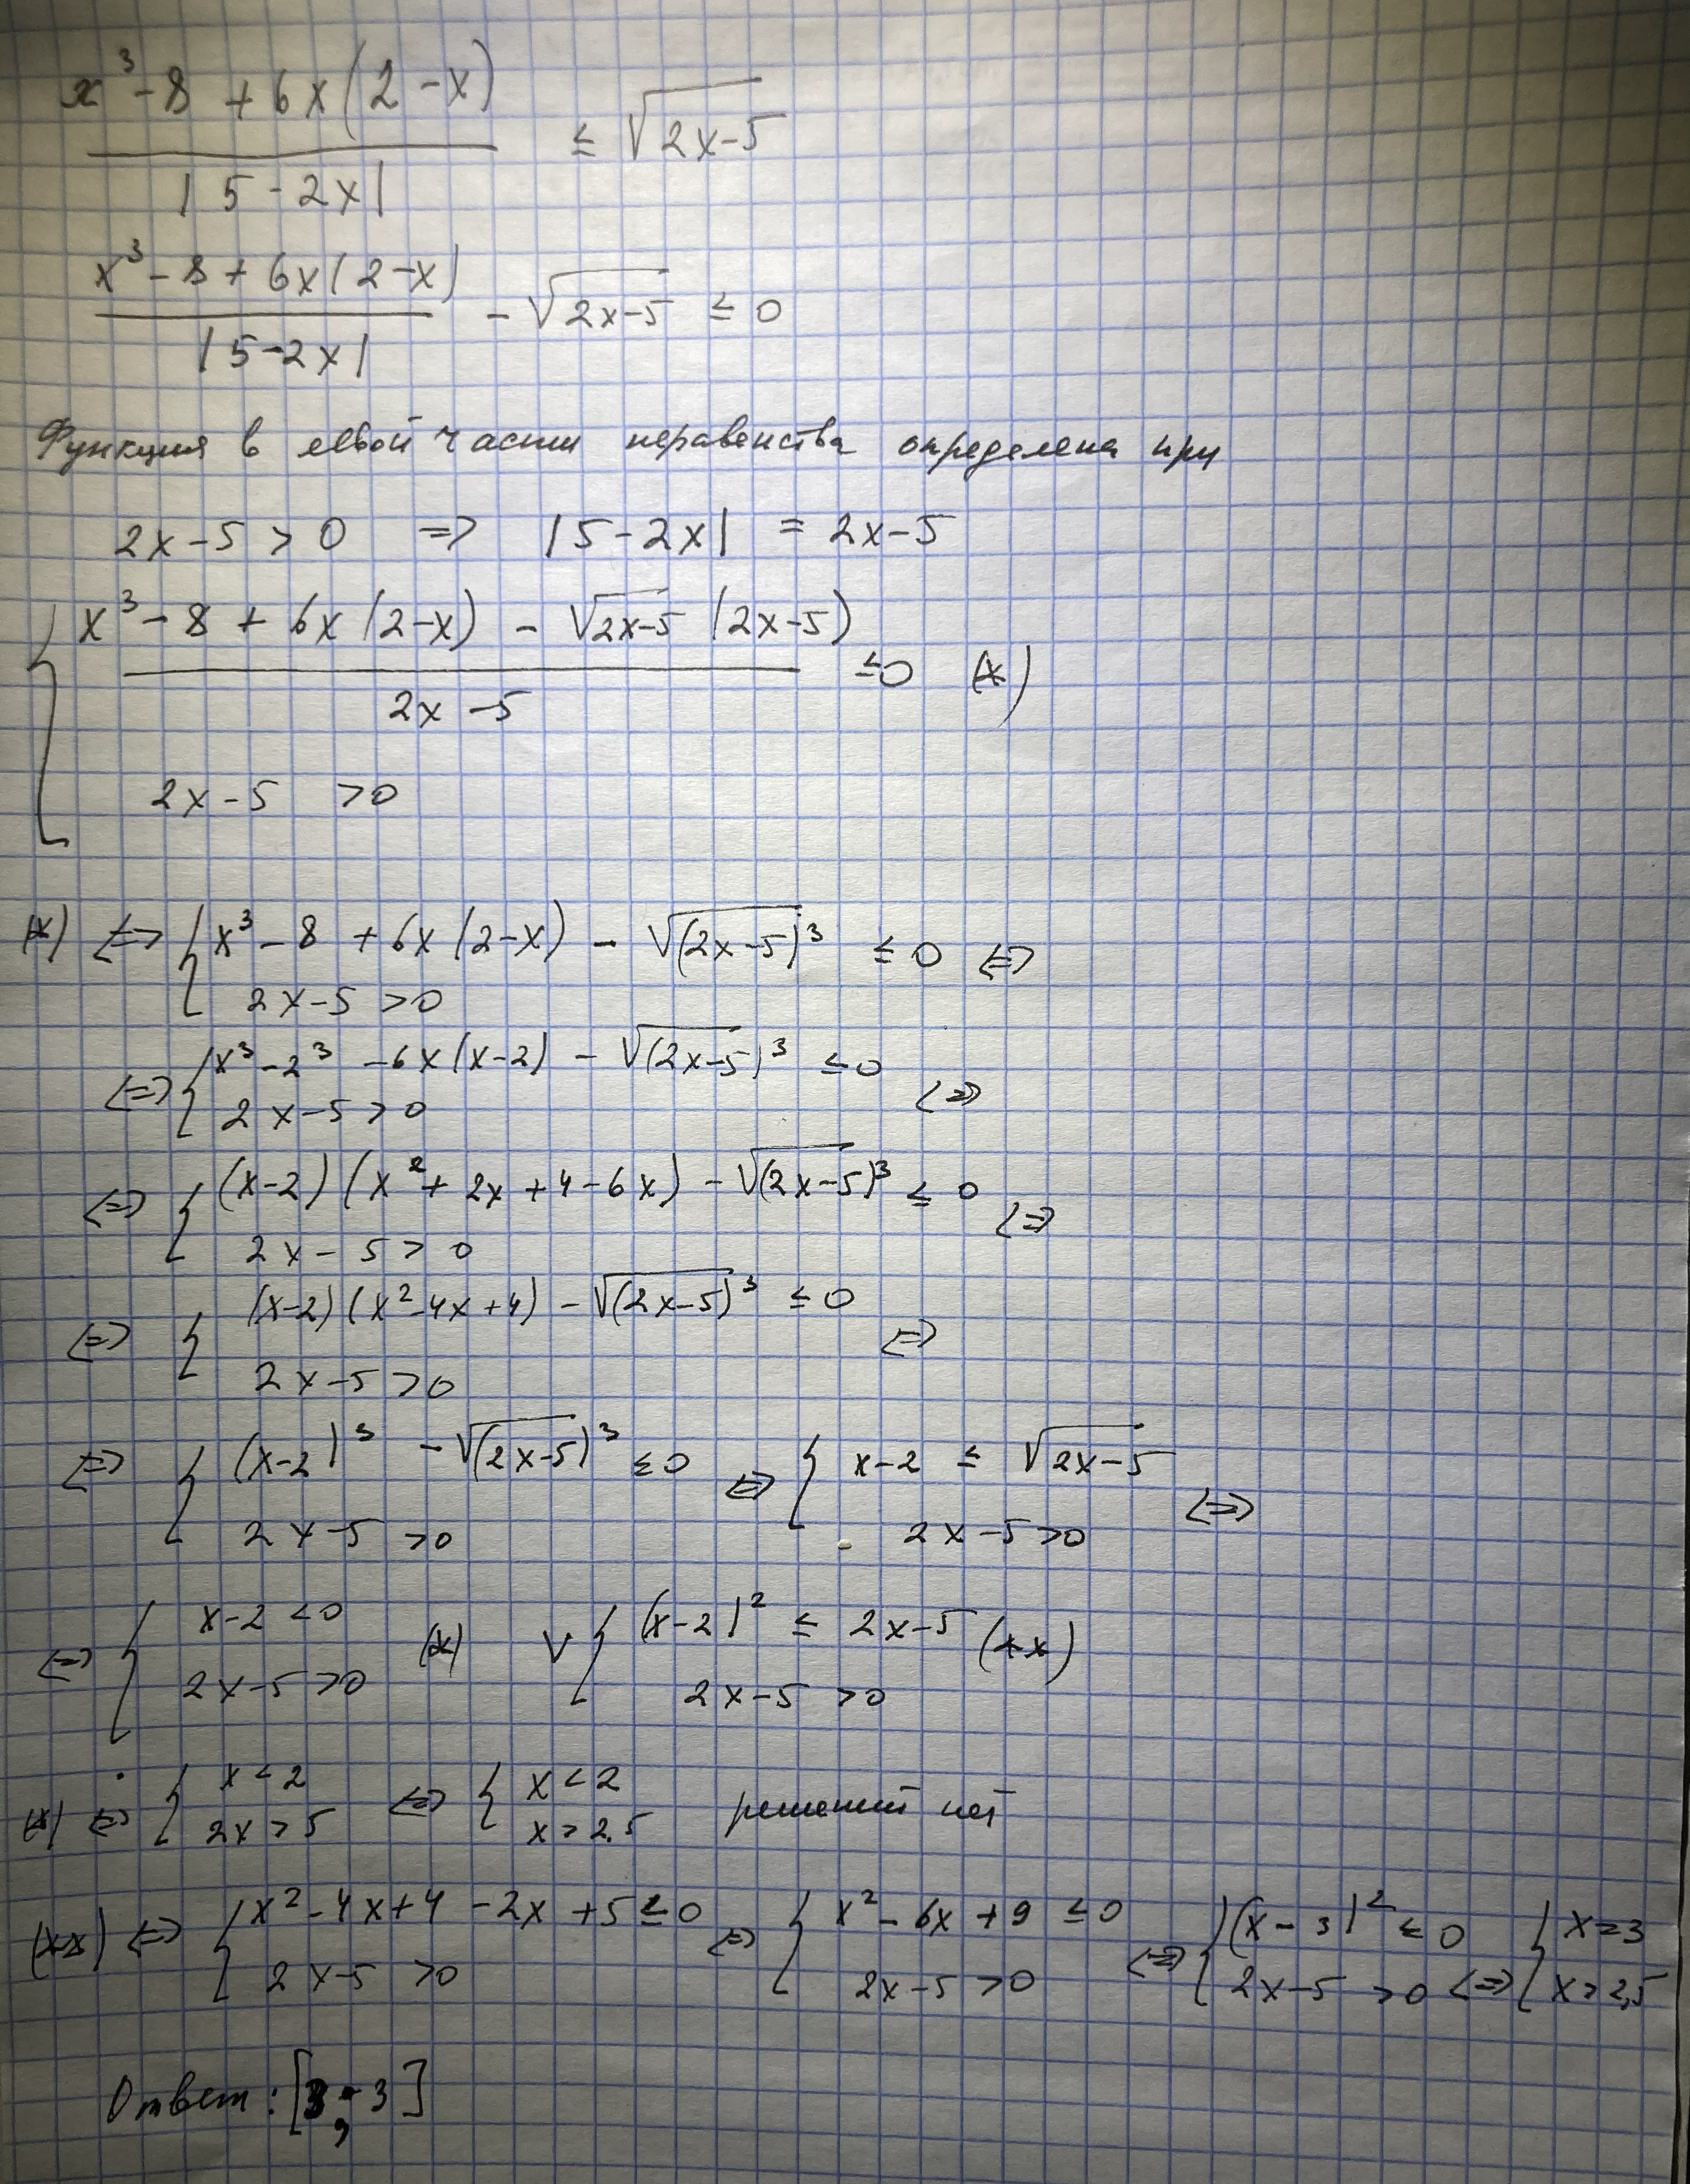 x³ - 8 + 6x(2 - x)
|5 - 2x|
≤ √2x-5
x³ - 8 + 6x(2-x)
|5-2x|
- √2x-5 ≤ 0
Функция в левой части неравенства определена при
2x-5 > 0 => |5-2x| = 2x-5
x³ - 8 + 6x(2-x) - √2x-5 (2x-5)
2x - 5
≤0 (*)
2x-5 >0
(*) <=> { x³ - 8 + 6x(2-x) - √(2x-5)³ ≤ 0 <=>
2x-5 >0
<=> { x³ - 2³ - 6x(x-2) - √(2x-5)³ ≤0 <=>
2x-5>0
<=> { (x-2)(x²+ 2x+4-6x) - √(2x-5)³ ≤ 0 <=>
2x - 5 > 0
<=> { (x-2)(x²-4x+4) - √(2x-5)³ ≤0 <=>
2x-5>0
<=> { (x-2)³ - √(2x-5)³ ≤0 <=> { x-2 ≤ √2x-5 <=>
2x-5 >0 2x-5>0
<=> { x-2 <0 (*) V { (x-2)² ≤ 2x-5 (**)
2x-5 >0 2x-5 >0
(*) <=> { x<2 <=> { x<2 решений нет
2x>5 x>2.5
(**) <=> { x²-4x+4 -2x +5≤0 <=> { x² - 6x +9 ≤0 <=> { (x-3)² ≤0 <=> { x=3
2x-5 >0 2x-5 >0 2x-5 >0 x>2,5
Ответ: [3;3]